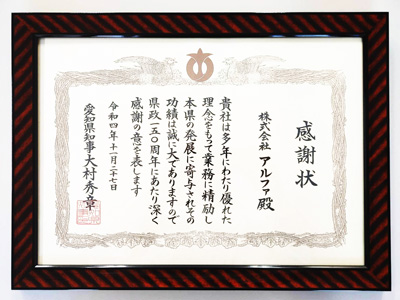 感謝状
株式会社 アルファ殿
貴社は多年にわたり優れた
理念をもって業務に精励し
本県の発展に寄与されその
功績は誠に大でありますので
県政一五〇周年にあたり深く
感謝の意を表します
令和四年十一月二十七日
愛知県知事大村秀章